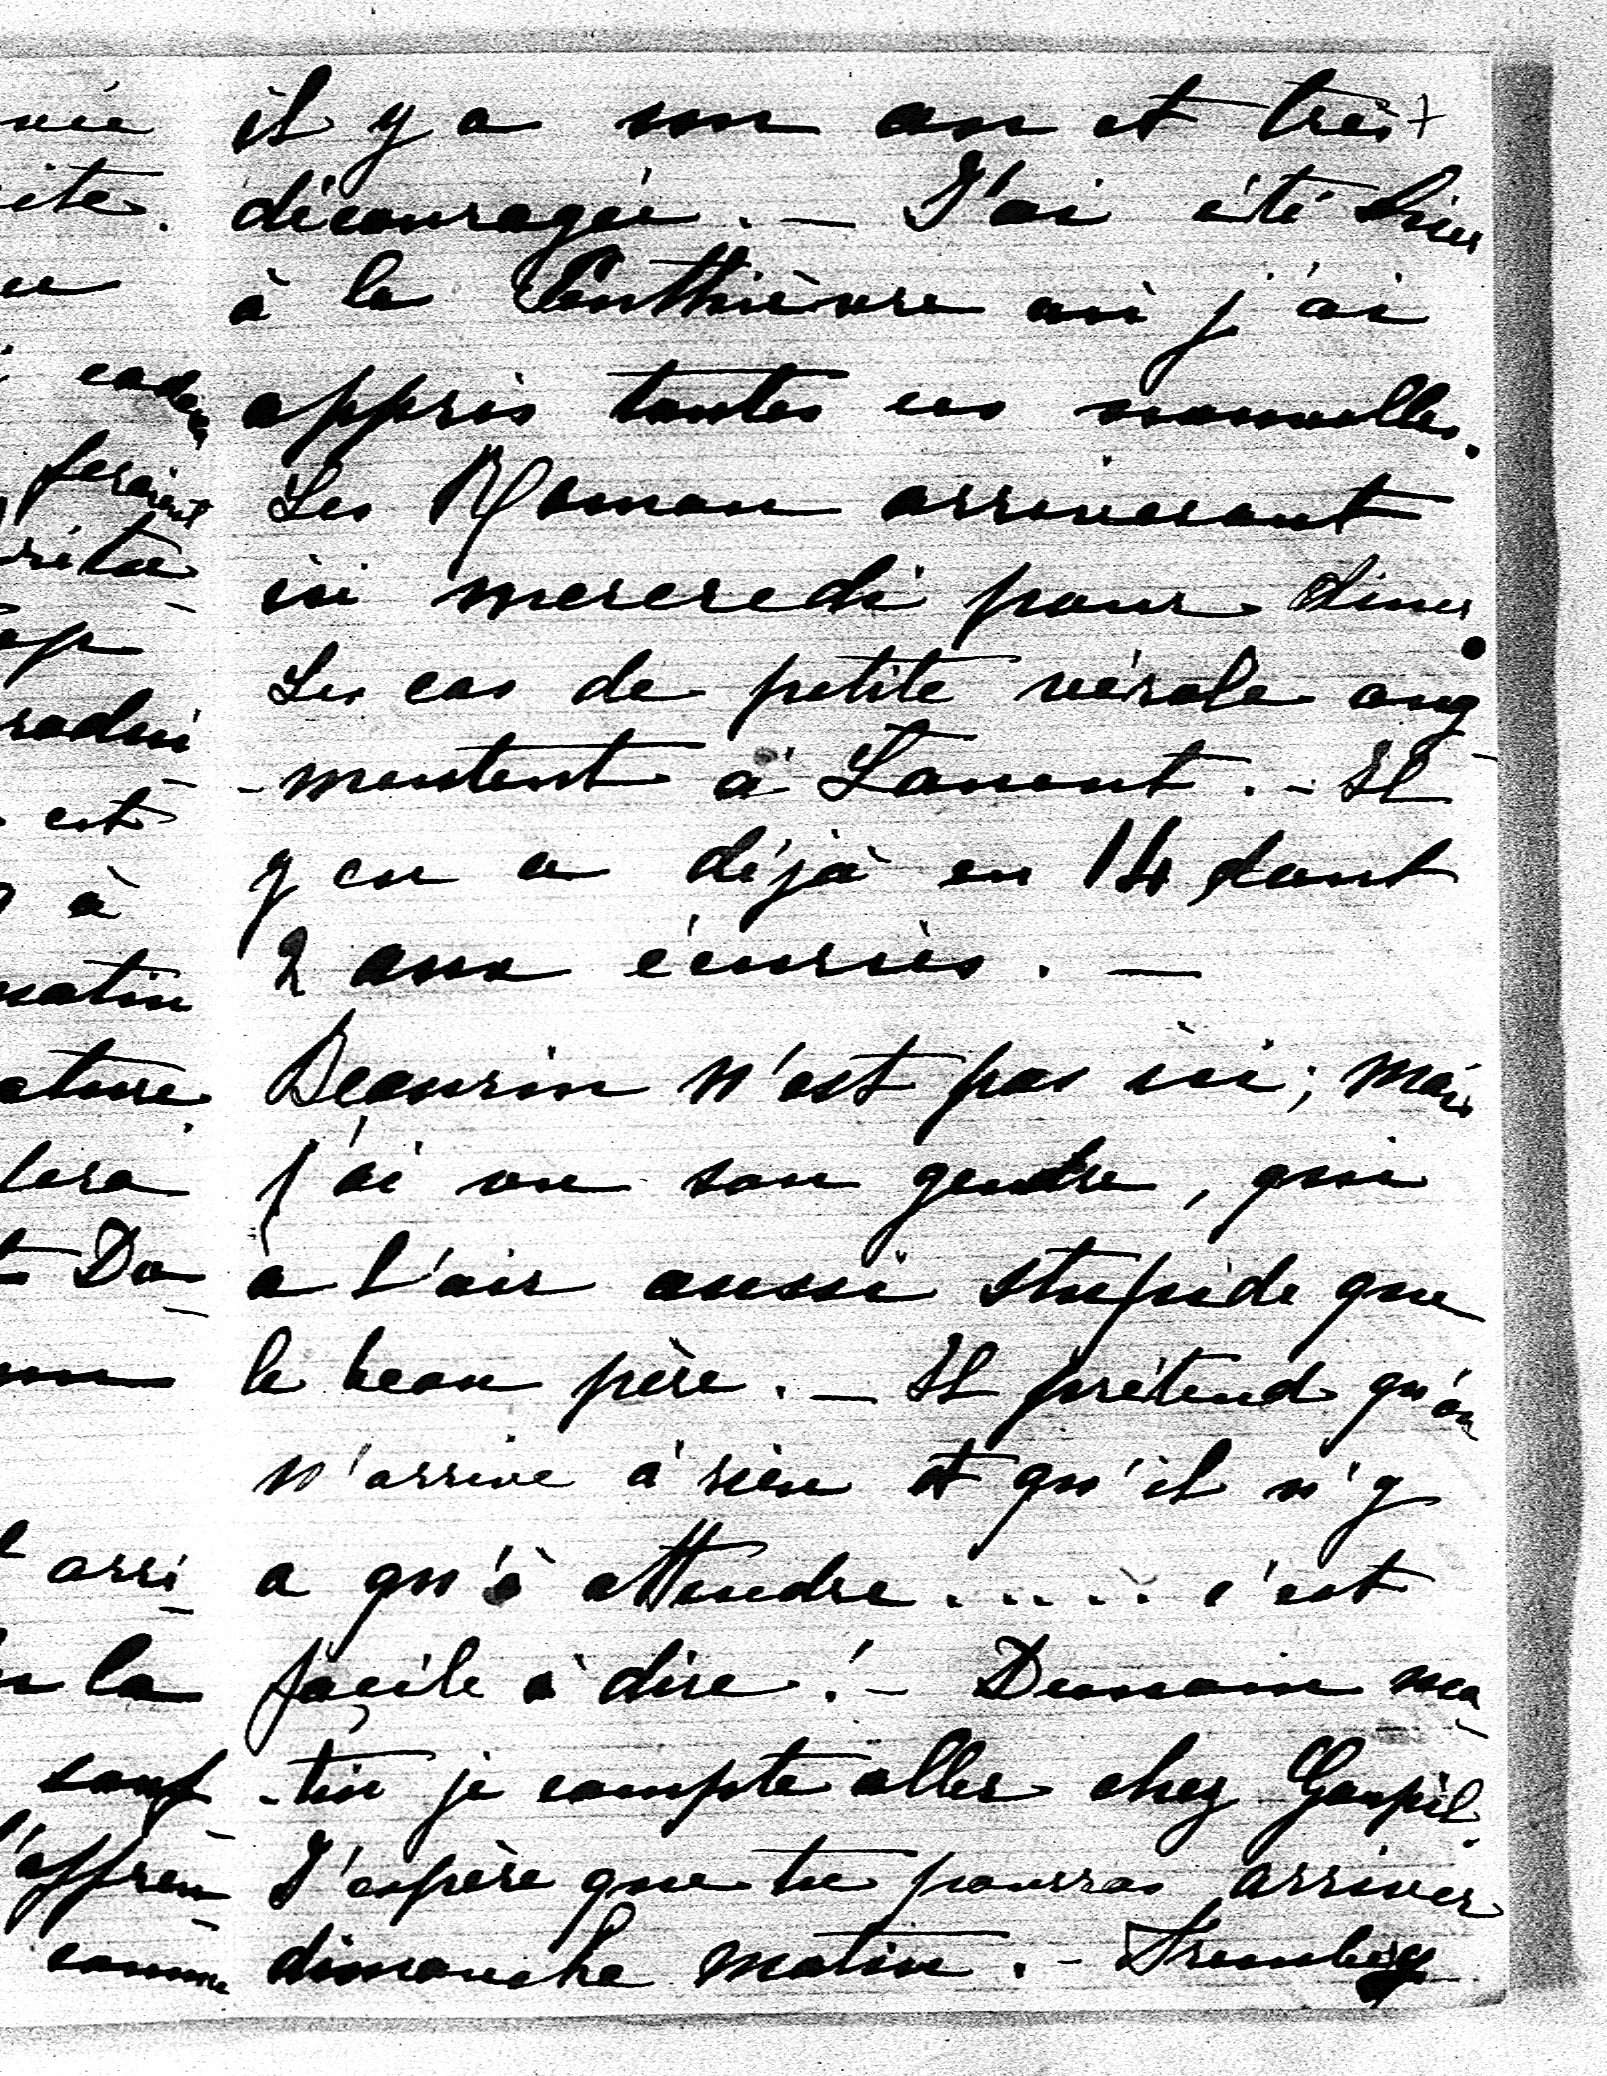 il y a un an et très
découragée. — J'ai été hier
à la Penthièvre où j'ai
appris toutes ces nouvelles.
Les Roman arriveront
ici mercredi pour diner.
Les cas de petite vérole aug
-mentent à Lanont. - Il
y en a déjà eu 14 dont
2 aux écuries. —
Beaurin n'est pas ici ; mais
j'ai vu son gendre, qui
a l'air aussi stupide que
le beau père. — Il prétend qu'on
n'arrive à rien et qu'il n'y
a qu'à attendre ..... c'est
facile à dire ! - Demain ma
-tin je compte aller chez Goupil.
J'espère que tu pourras arriver
dimanche matin. -
ite.
cadeau
feraient
est
à
matin
ature.
Do-
arri-
la
sauf
comme